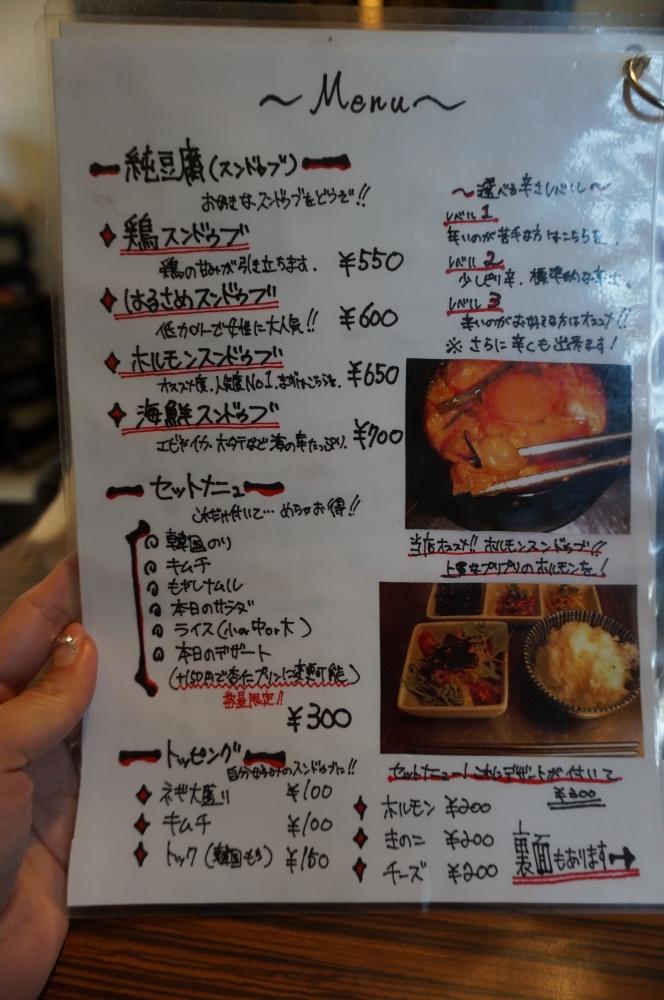 ～Menu～
純豆腐(スンドゥブ)
お好きなスンドゥブをどうぞ!!
鶏スンドゥブ
鶏の甘みが引き立ちます. ¥550
はるさめスンドゥブ
低カロリーで女性に大人気!! ¥600
ホルモンスンドゥブ
オススメ度.人気度No1.まずはこちらを. ¥650
海鮮スンドゥブ
エビやイカ、ホタテなど海の幸たっぷり. ¥700
～選べる辛さレベル～
レベル1
辛いのが苦手な方はこちらを.
レベル2
少しピリ辛.標準的な辛さ.
レベル3
辛いのがお好きな方はオススメ!!
※さらに辛くも出来ます!
当店オススメ!! ホルモンスンドゥブ!!
上質なプリプリのホルモンを!
セットメニュー
これだけ付いて…めちゃお得!!
韓国のり
キムチ
もやしナムル
本日のサラダ
ライス(小or中or大)
本日のデザート
(+150円で杏仁プリンに変更可能)
数量限定!!
¥300
セットメニュー!これにデザートが付いて
¥300
トッピング
自分好みのスンドゥブに!!
ネギ大盛り ¥100
キムチ ¥100
トック(韓国もち) ¥150
ホルモン ¥200
きのこ ¥200
チーズ ¥200
裏面もあります→